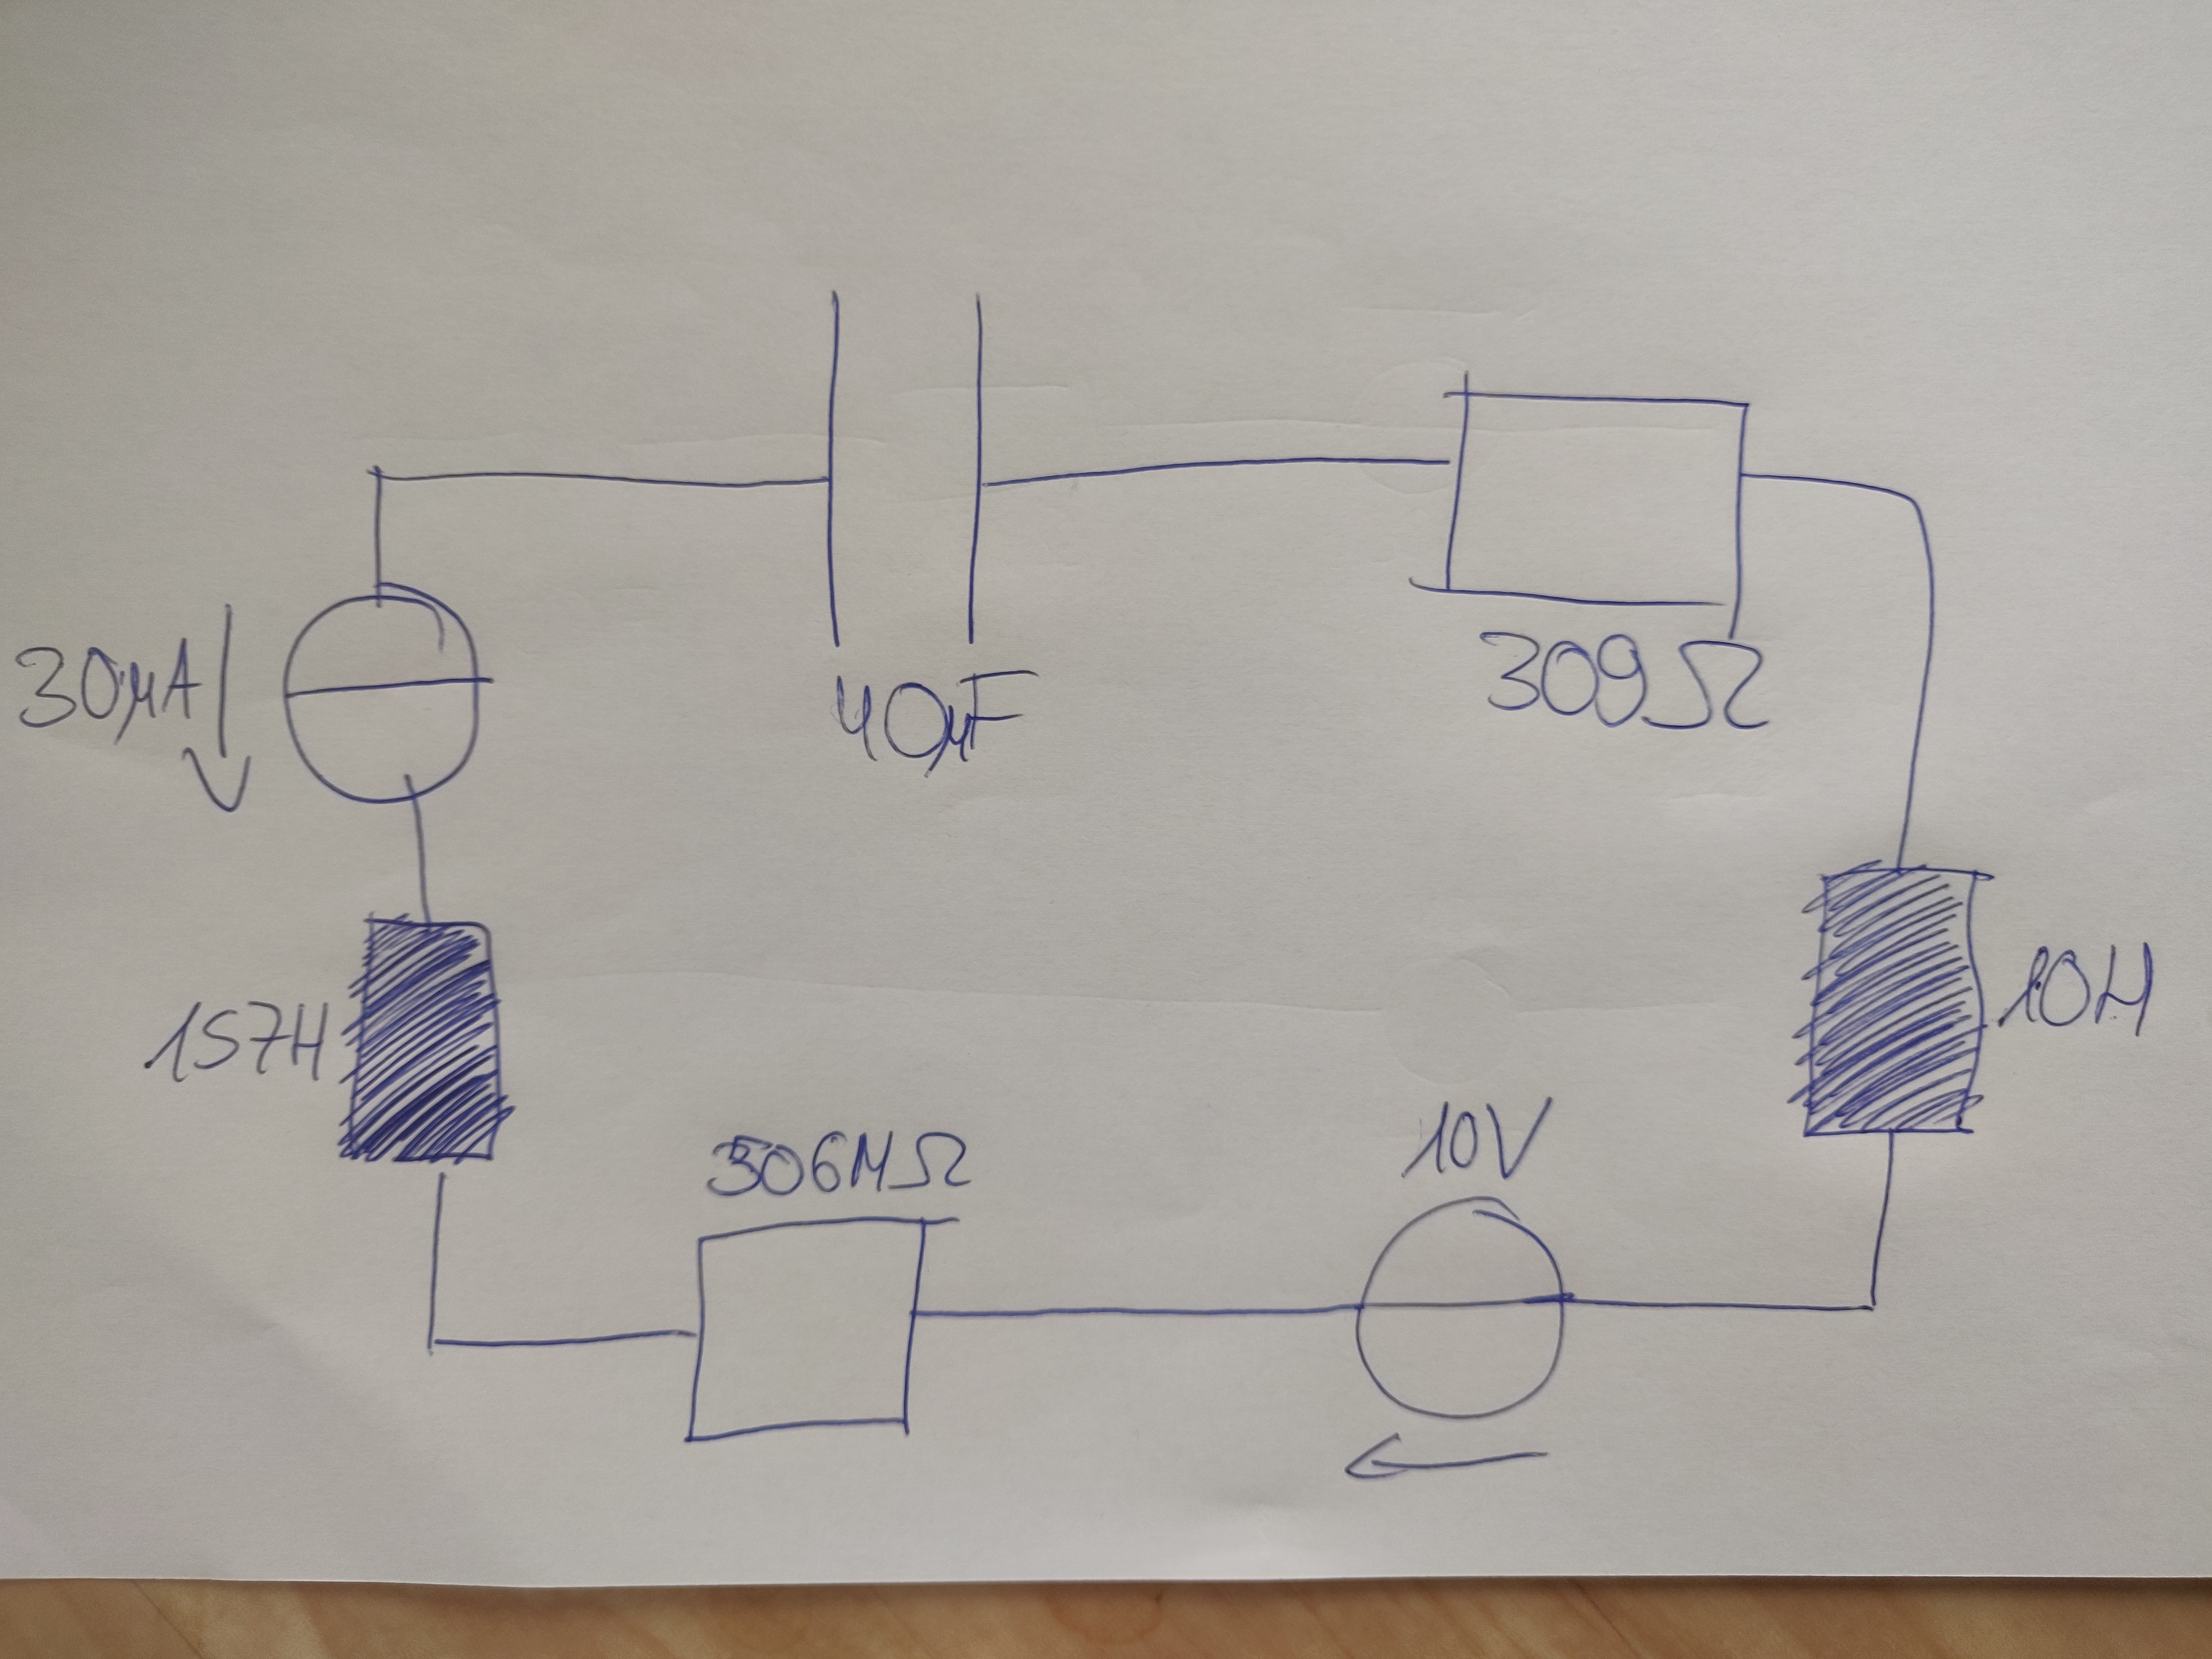 40µF
309Ω
30µA
157H
10H
306MΩ
10V